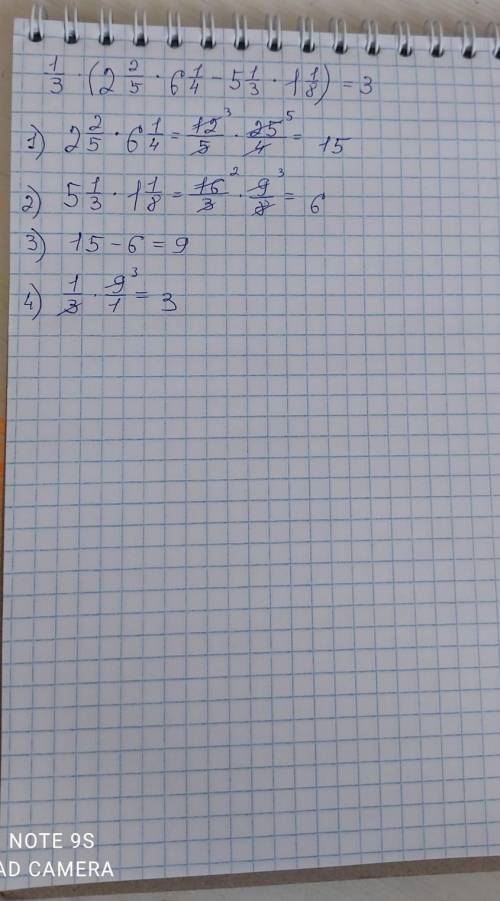 1/3 · (2 2/5 · 6 1/4 − 5 1/3 · 1 1/8) = 3
1) 2 2/5 · 6 1/4 = 12³/5 · 25⁵/4 = 15
2) 5 1/3 · 1 1/8 = 16²/3 · 9³/8 = 6
3) 15 − 6 = 9
4) 1/3 · 9³/1 = 3
NOTE 9S
AD CAMERA